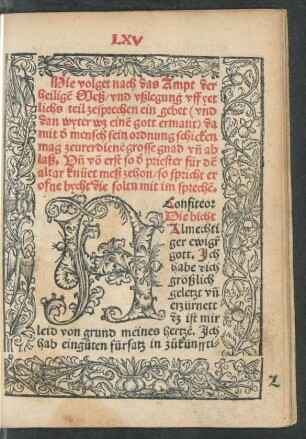 LXV
Hie volget nach das Ampt der
heiligẽ Meß/vnd vßlegung vff yet
lichs teil zesprechen ein gebet (vnd
dan wyter wz einẽ gott ermant) da
mit d mensch sein ordnung schicken
mag zeuerdienẽ grosse gnad vñ ab
laß. Vñ võ erst so d priester für dẽ
altar knüet meß zehon/so spricht er
ofne bycht die soltu mit im sprechẽ.
Confiteor
Die bicht
Almechti
ger ewigr
gott. Jch
habe dich
größlich
geletzt vñ
erzürnet
dz ist mir
leid von grund meines hertzẽ. Jch
hab ein gůten fürsatz in zůkunffti-